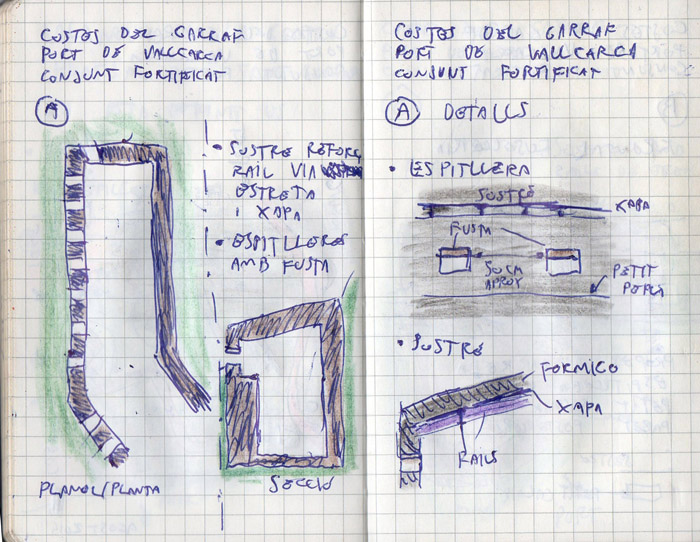 COSTES DEL GARRAF
PORT DE VALLCARCA
CONJUNT FORTIFICAT
A
• SOSTRE REFORÇ
RAIL VIA
ESTRETA
I XAPA
• ESPITLLERES
AMB FUSTA
PLANOL/PLANTA
SECCIO
COSTES DEL GARRAF
PORT DE VALLCARCA
CONJUNT FORTIFICAT
A DETALLS
• ESPITLLERA
SOSTRE
XAPA
FUSTA
50CM
APROX
PETIT
• SOSTRE
FORMIGO
XAPA
RAILS